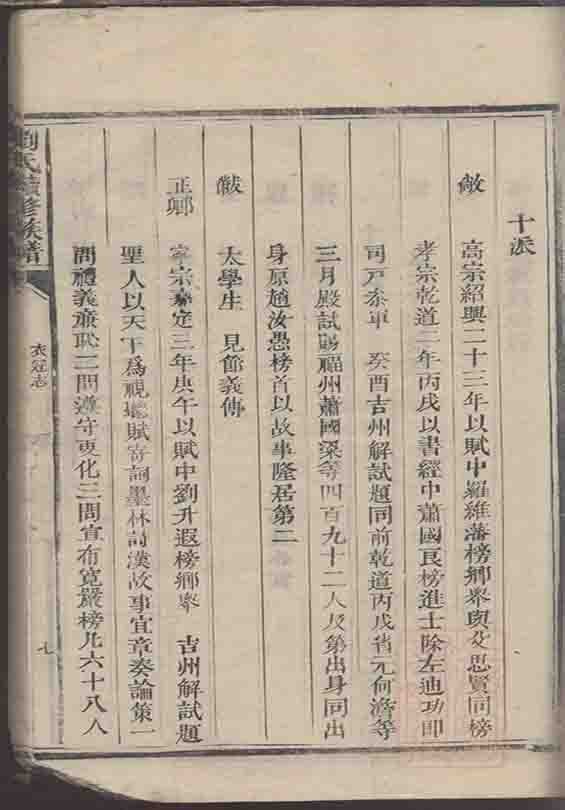 十派
敞 高宗紹興二十三年以賦中羅維藩榜鄉舉與父思賢同榜
孝宗乾道二年丙戌以書經中蕭國良榜進士除左迪功郎
司戶叅軍 癸酉吉州解試題同前乾道丙戌省元何澹等
三月殿試賜福州蕭國梁等四百九十二人及第出身同出
身原趙汝愚榜首以故事隆居第二
黻 太學生 見節義傳
正卿 寧宗嘉定三年庚午以賦中劉升遐榜鄉舉 吉州解試題
聖人以天下為視聽賦寄詞墨林詩漢故事宜章奏論策一
問禮義廉恥二問遵守更化三問宣布寬嚴榜凡六十八人
劉氏續修族譜
衣冠志
七